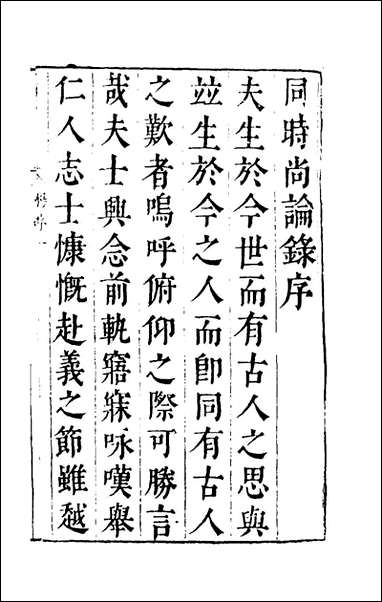 同時尚論錄序
夫生於今世而有古人之思與
竝生於今之人而卽同有古人
之歎者嗚呼俯仰之際可勝言
哉夫士興念前軌寤寐咏嘆舉
仁人志士慷慨赴義之節雖越